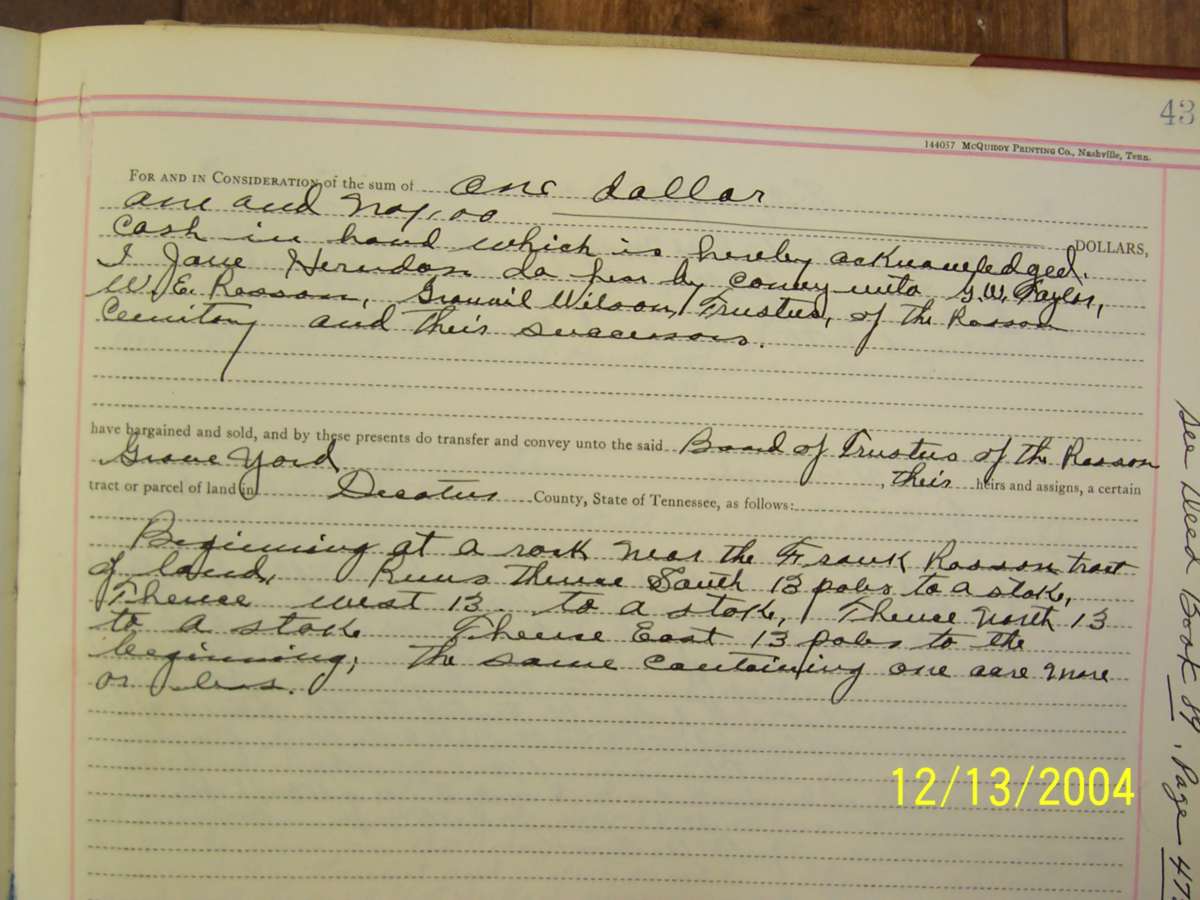 43
144057 McQuiddy Printing Co., Nashville, Tenn.
For and in Consideration of the sum of one dollar
one and no/100 DOLLARS,
cash in hand which is hereby acknowledged.
I Jane Herndon do hear by convey unto G.W. Taylor,
W.E. Rosson, Granvil Wilson, Trustus, of the Rosson
Cemitory and their successors.
have bargained and sold, and by these presents do transfer and convey unto the said Board of Trustus of the Rosson
Grave Yord , their heirs and assigns, a certain
tract or parcel of land in Decatur County, State of Tennessee, as follows:
Beginning at a rock near the Frank Rosson tract
of land, Runs thence South 13 poles to a stoke,
Thence west 13. to a stoke, Thence north 13
to a stoke Thence East 13 poles to the
beginning, the same containing one acre more
or less.
See Deed Book 84, Page 47
12/13/2004